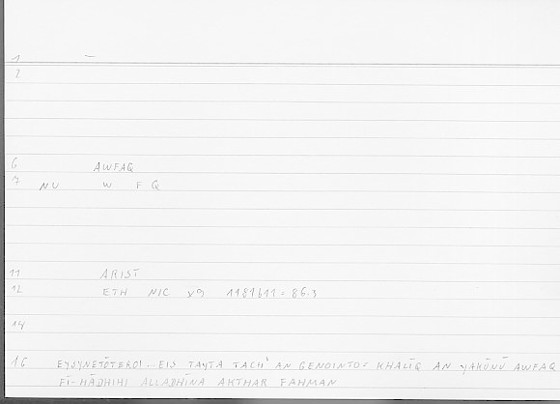 1 –
2
6 AWFAQ
7 NU W F Q
11 ARIST
12 ETH NIC x9 1181b11 = 86.3
14
16 EYSYNETŌTEROI - EIS TAYTA TACH' AN GENOINTO: KHALĪQ AN YAKŪNŪ AWFAQ
FĪ-HĀDHIHI ALLADHĪNA AKTHAR FAHMAN